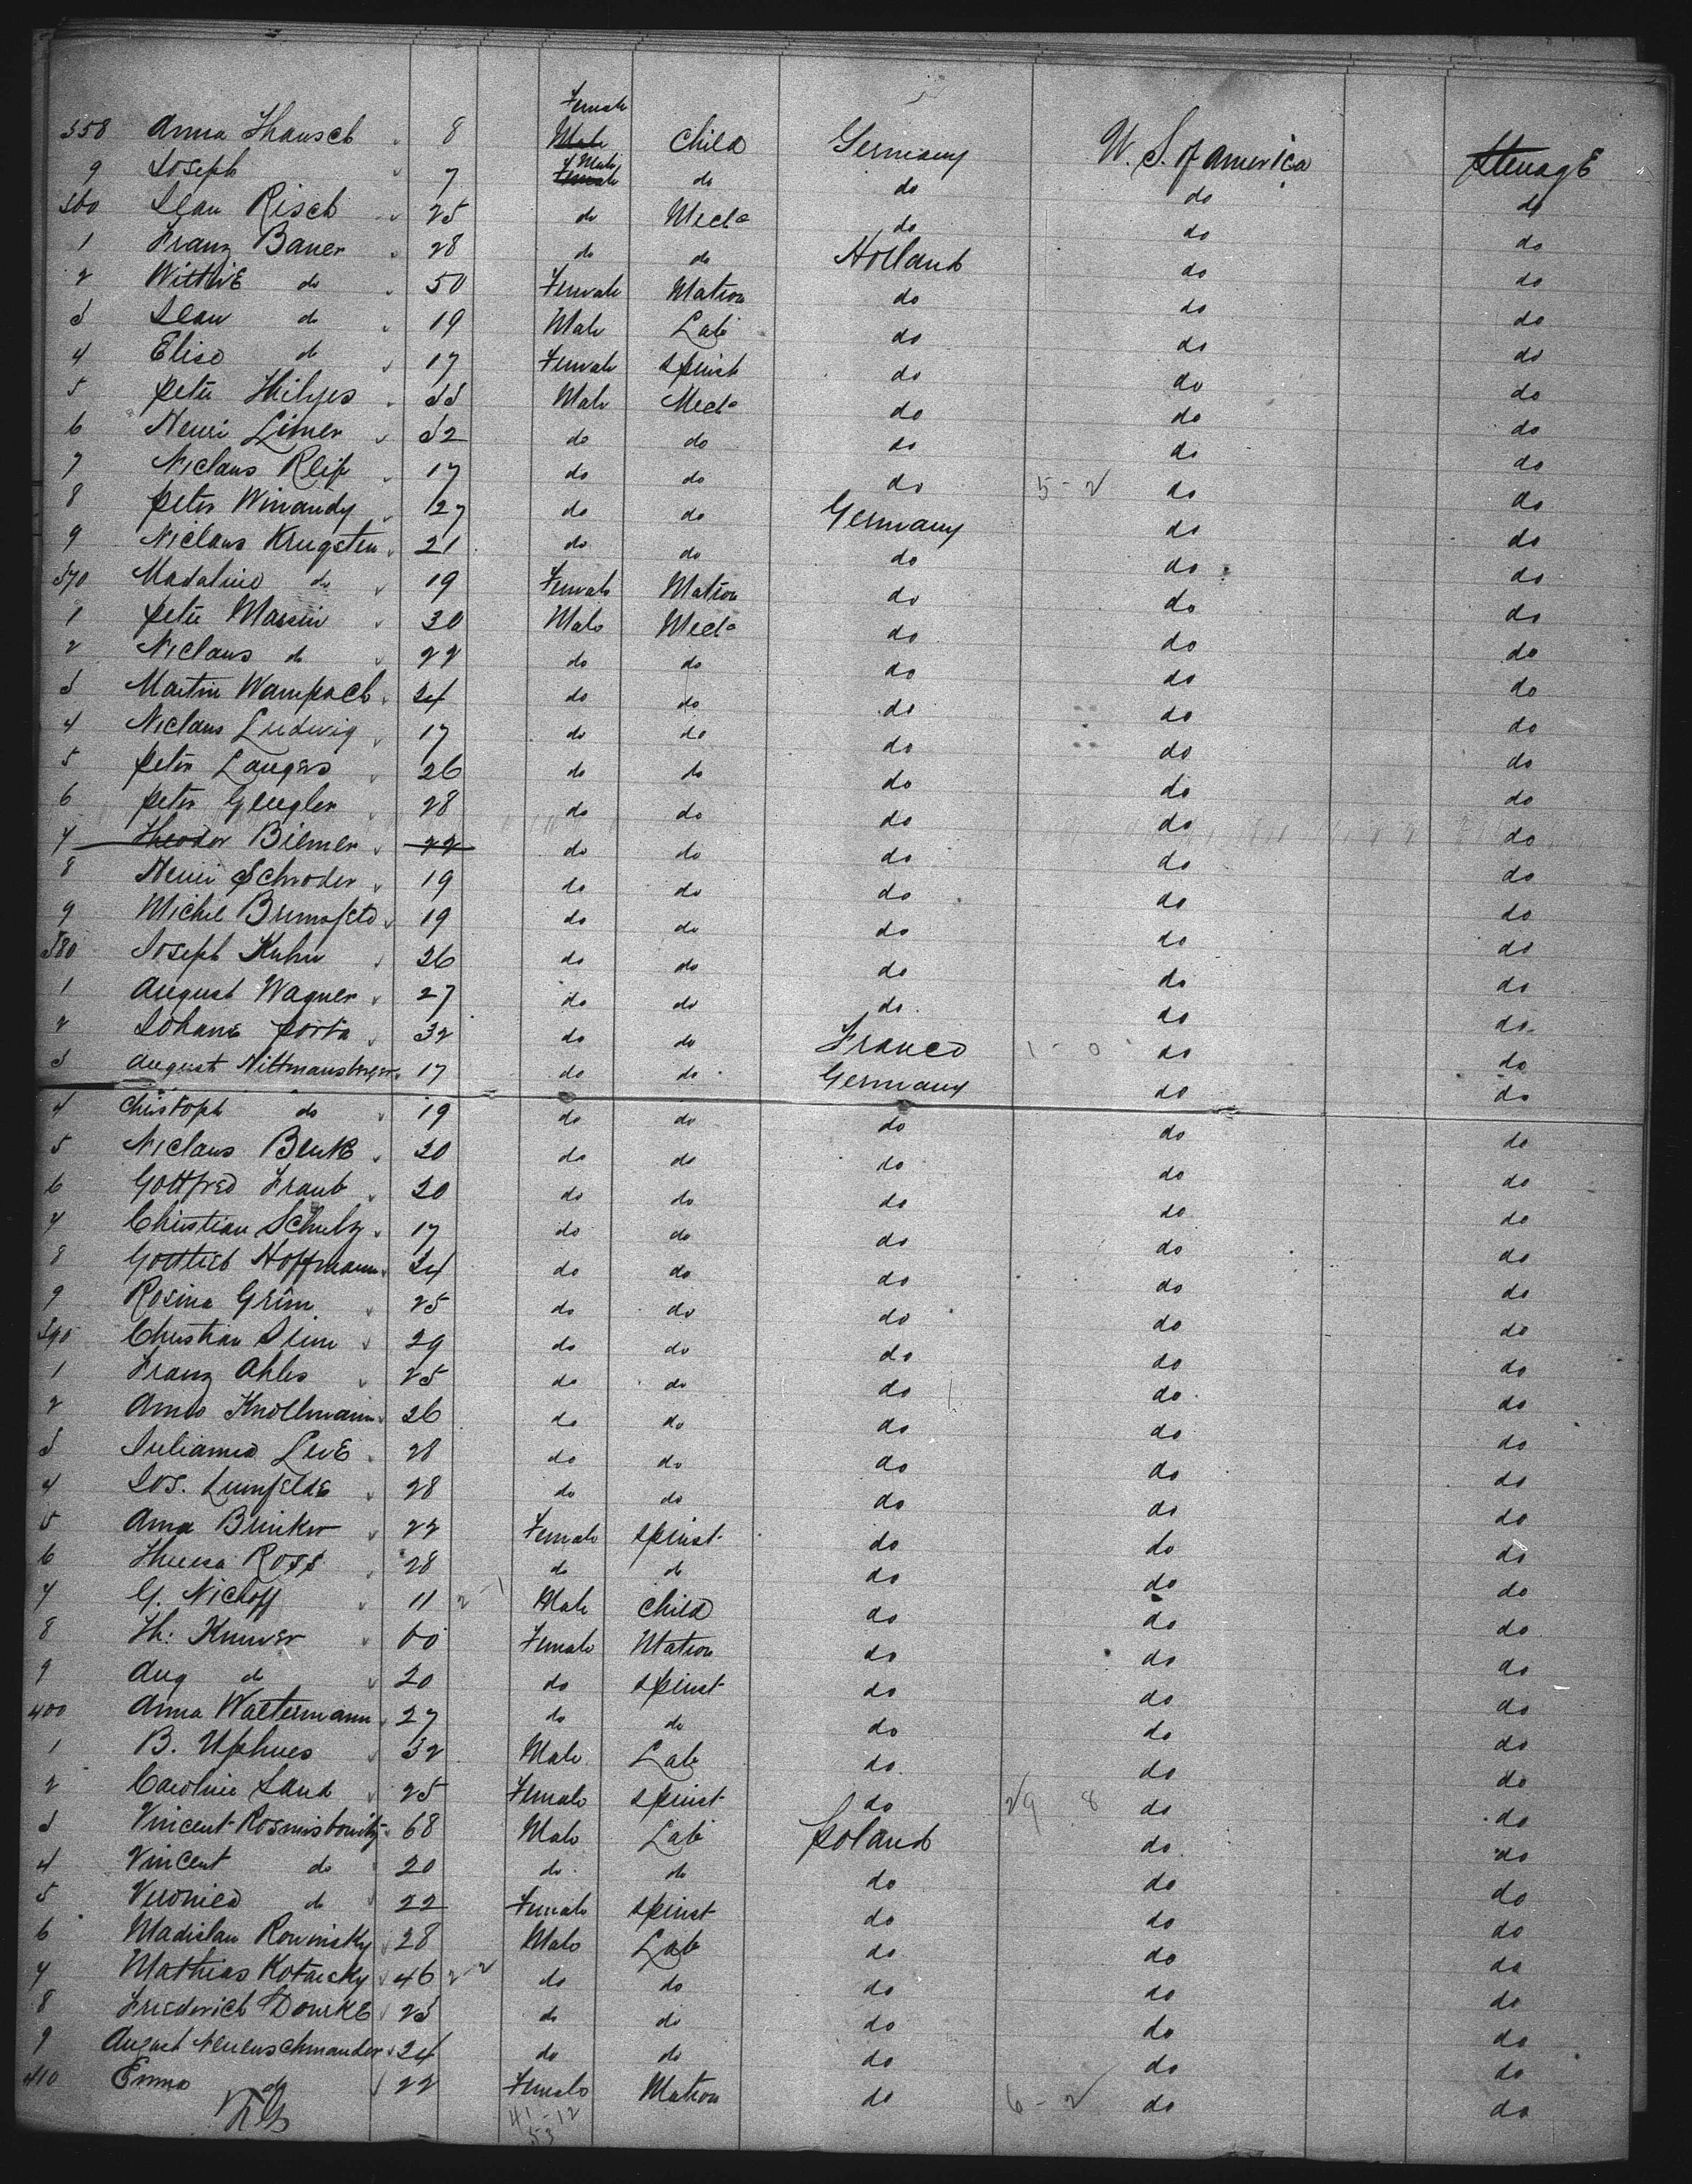 Female
358 Anna Thausch 8 Male Child Germany U. S. of America Steerage
9 Joseph 7 Male Female do do do do
360 Jean Risch 25 do Mech do do do
1 Franz Bauer 28 do do Holland do do
2 Wittwe do 50 Female Matron do do do
3 Jean do 19 Male Lab do do do
4 Elise do 17 Female Spinst do do do
5 Peter Hilges 33 Male Mech do do do
6 Henri Limer 32 do do do do do
7 Niclaus Reif 17 do do do 5-2 do do
8 Peter Winandy 27 do do Germany do do
9 Niclaus Krugsten 21 do do do do do
370 Madaline do 19 Female Matron do do do
1 Peter Massin 30 Male Mech do do do
2 Niclaus do 22 do do do do do
3 Martin Wampach 24 do do do do do
4 Niclaus Ludwig 17 do do do do do
5 Peter Langers 26 do do do do do
6 Peter Gengler 28 do do do do do
7 Theodor Biemer 22 do do do do do
8 Henri Schroder 19 do do do do do
9 Michel Brimsfeld 19 do do do do do
380 Joseph Kuhn 26 do do do do do
1 August Wagner 27 do do do do do
2 Johane Porta 32 do do France 1-0 do do
3 August Nittmansberger 17 do do Germany do do
4 Christoph do 19 do do do do do
5 Niclaus Benke 20 do do do do do
6 Gottfred Traub 20 do do do do do
7 Christian Schulz 17 do do do do do
8 Gottlieb Hoffmann 24 do do do do do
9 Rosina Grim 25 do do do do do
390 Christian 29 do do do do do
1 Franz Ahles 25 do do do do do
2 Knollmann 26 do do do do do
3 Julianna Leve 28 do do do do do
4 Jos. Lumfelde 28 do do do do do
5 Anna Brinker 22 Female Spinst do do do
6 Theresa Ross 28 do do do do do
7 G. Niehoff 11 Male Child do do do
8 Th: Knuver 60 Female Matron do do do
9 Aug do 20 do Spinst do do do
400 Anna Waltermann 27 do do do do do
1 B. Uphues 32 Male Lab do do do
2 Caroline Sand 25 Female Spinst do 29 8 do do
3 Vincent Rosmisbowitz 68 Male Lab Poland do do
4 Vincent do 20 do do do do do
5 Veronica do 22 Female Spinst do do do
6 Madislau Rowinsky 28 Male Lab do do do
7 Mathias Kotarcky 46 do do do do do
8 Friederich Domke 23 do do do do do
9 August Neuenschmander 24 do do do do do
410 Emma do 22 Female Matron do 6-2 do do
41-12
53